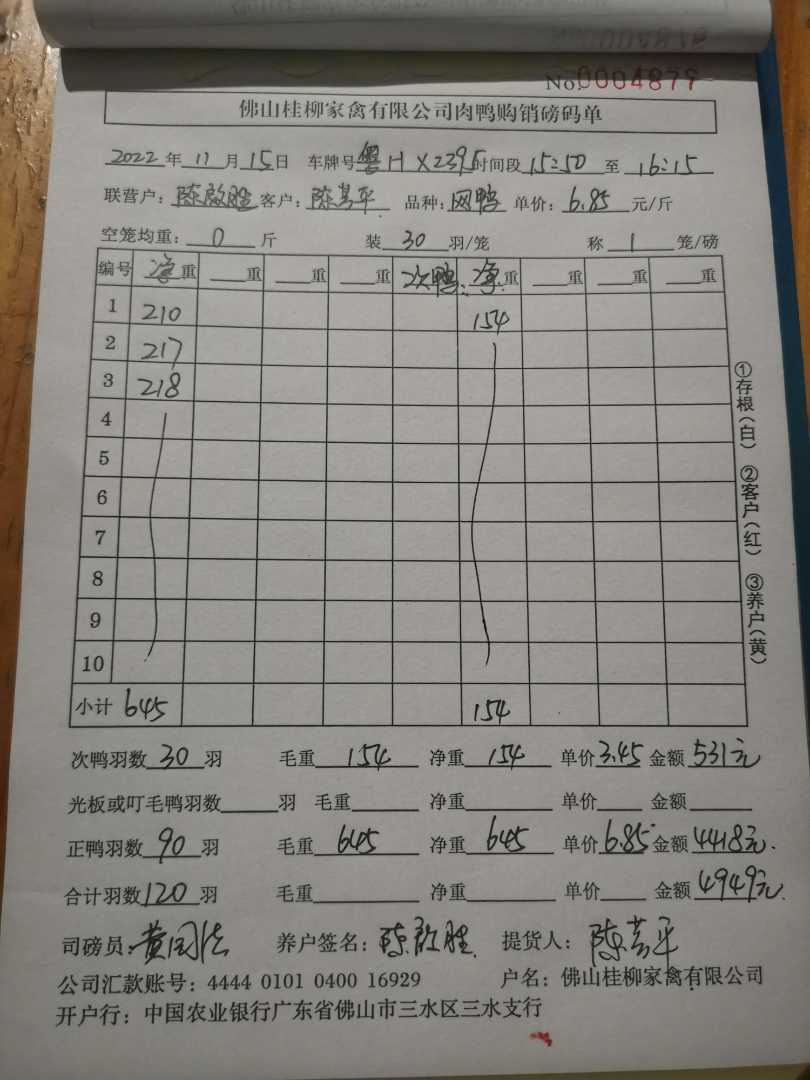 No.0004879
佛山桂柳家禽有限公司肉鸭购销磅码单
2022年11月15日 车牌号粤HX2395时间段15:50至16:15
联营户:陈敌胜 客户:陈芳平 品种:网鸭 单价:6.85元/斤
空笼均重:0斤 装30羽/笼 称1笼/磅
编号 净重 重 重 重 次鸭: 净重 重 重 重
1 210 154
2 217
3 218
4
5
6
7
8
9
10
小计 645 154
次鸭羽数30羽 毛重154 净重154 单价3.45 金额531元
光板或叮毛鸭羽数 羽 毛重 净重 单价 金额
正鸭羽数90羽 毛重645 净重645 单价6.85 金额4418元.
合计羽数120羽 毛重 净重 单价 金额4949元.
司磅员: 养户签名:陈敌胜 提货人:陈芳平
公司汇款账号:4444 0101 0400 16929 户名:佛山桂柳家禽有限公司
开户行:中国农业银行广东省佛山市三水区三水支行
①存根(白) ②客户(红) ③养户(黄)